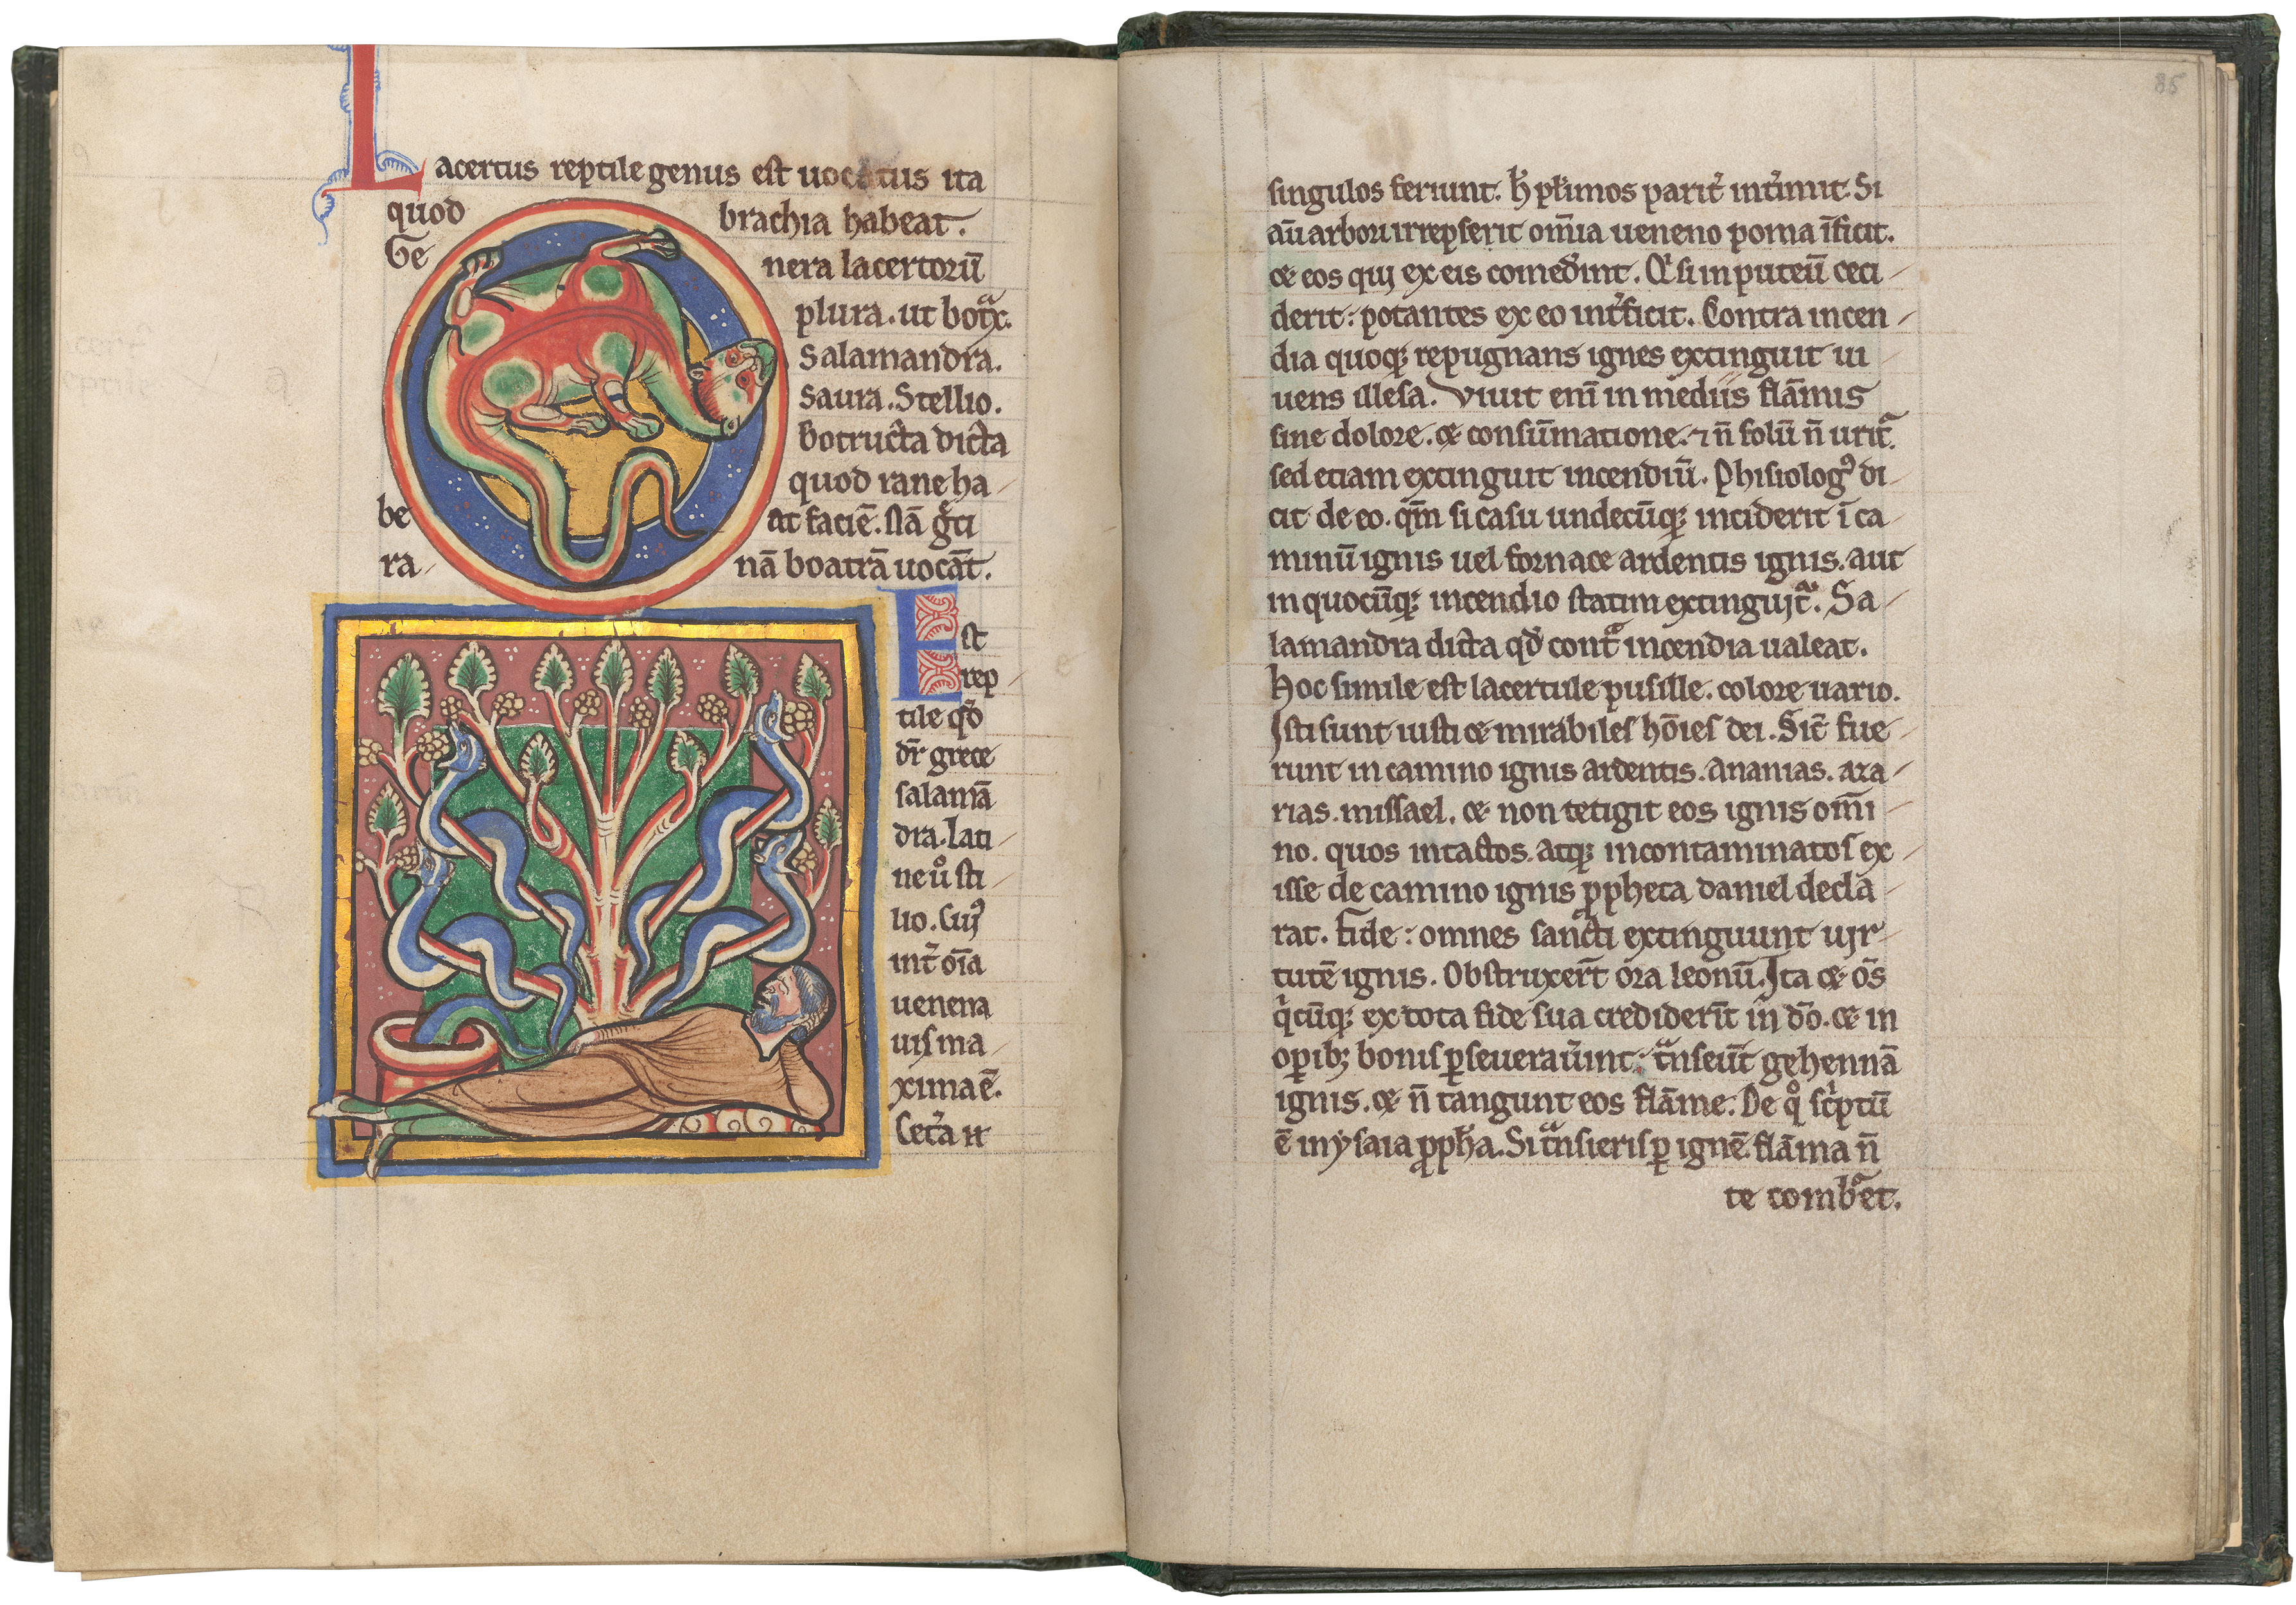 Lacertus reptile genus est uocatus ita
quod brachia habeat.
Ge nera lacertorū
plura. ut botͣx.
Salamandra.
Saura. Stellio.
Botructa dicta
quod rane ha
be at faciē. Nā g̃ci
ra nā boatrā uocāt.
Est
rep
tile qd̄
dr̄ grece
salamā
dra. lati
ne uͦ sti
lio. Cuiꝰ
int̄ oīa
uenena
uis ma
xima ē.
Cet̄a
85
singulos feriunt. h̄ pl̄imos parit̄ int̄imit. Si
aū arbori irrepserit om̄ia ueneno poma īficit.
⁊ eos qui ex eis comed̄int. Qd̄ si in puteū ceci
derit: potantes ex eo int̄ficit. Contra incen
dia quoqꝫ repugnans ignes extinguit ui
uens illesa. Viuit eni in mediis flāmis
sine dolore. ⁊ consūmatione. ⁊ n̄ solū n̄ uritͣ.
sed etiam extinguit incendiū. Phisiologꝰ di
cit de eo. qm̄ si casu undecūqꝫ inciderit ī ca
minū ignis uel fornace ardentis ignis. aut
in quocūqꝫ incendio statim extinguitͣ. Sa
lamandra dicta qd̄ contͣ incendia ualeat.
Hoc simile est lacertule pusille. colore uario.
Isti sunt iusti ⁊ mirabiles hōies dei. Sic̄ fue
runt in camino ignis ardentis. Ananias. aza
rias. missael. ⁊ non tetigit eos ignis om̄i
no. quos intactos. atqꝫ incontaminatos ex
isse de camino ignis ꝓpheta daniel decla
rat. Fide: omnes sancti extinguunt uir
tutē ignis. Obstruxer̄t ora leonū. Ita ⁊ om̄s
qͥcūqꝫ ex tota fide sua crediderīt in dō. ⁊ in
opibꝫ bonis ꝑseuerau̅unt: tͣnseūt gehennā
ignis. ⁊ n̄ tangunt eos flāme. De qͦ scͥptū
ē in ysaia ꝓph̄a. Si tͣnsieris ꝑ ignē. flāma n̄
te combͣet.